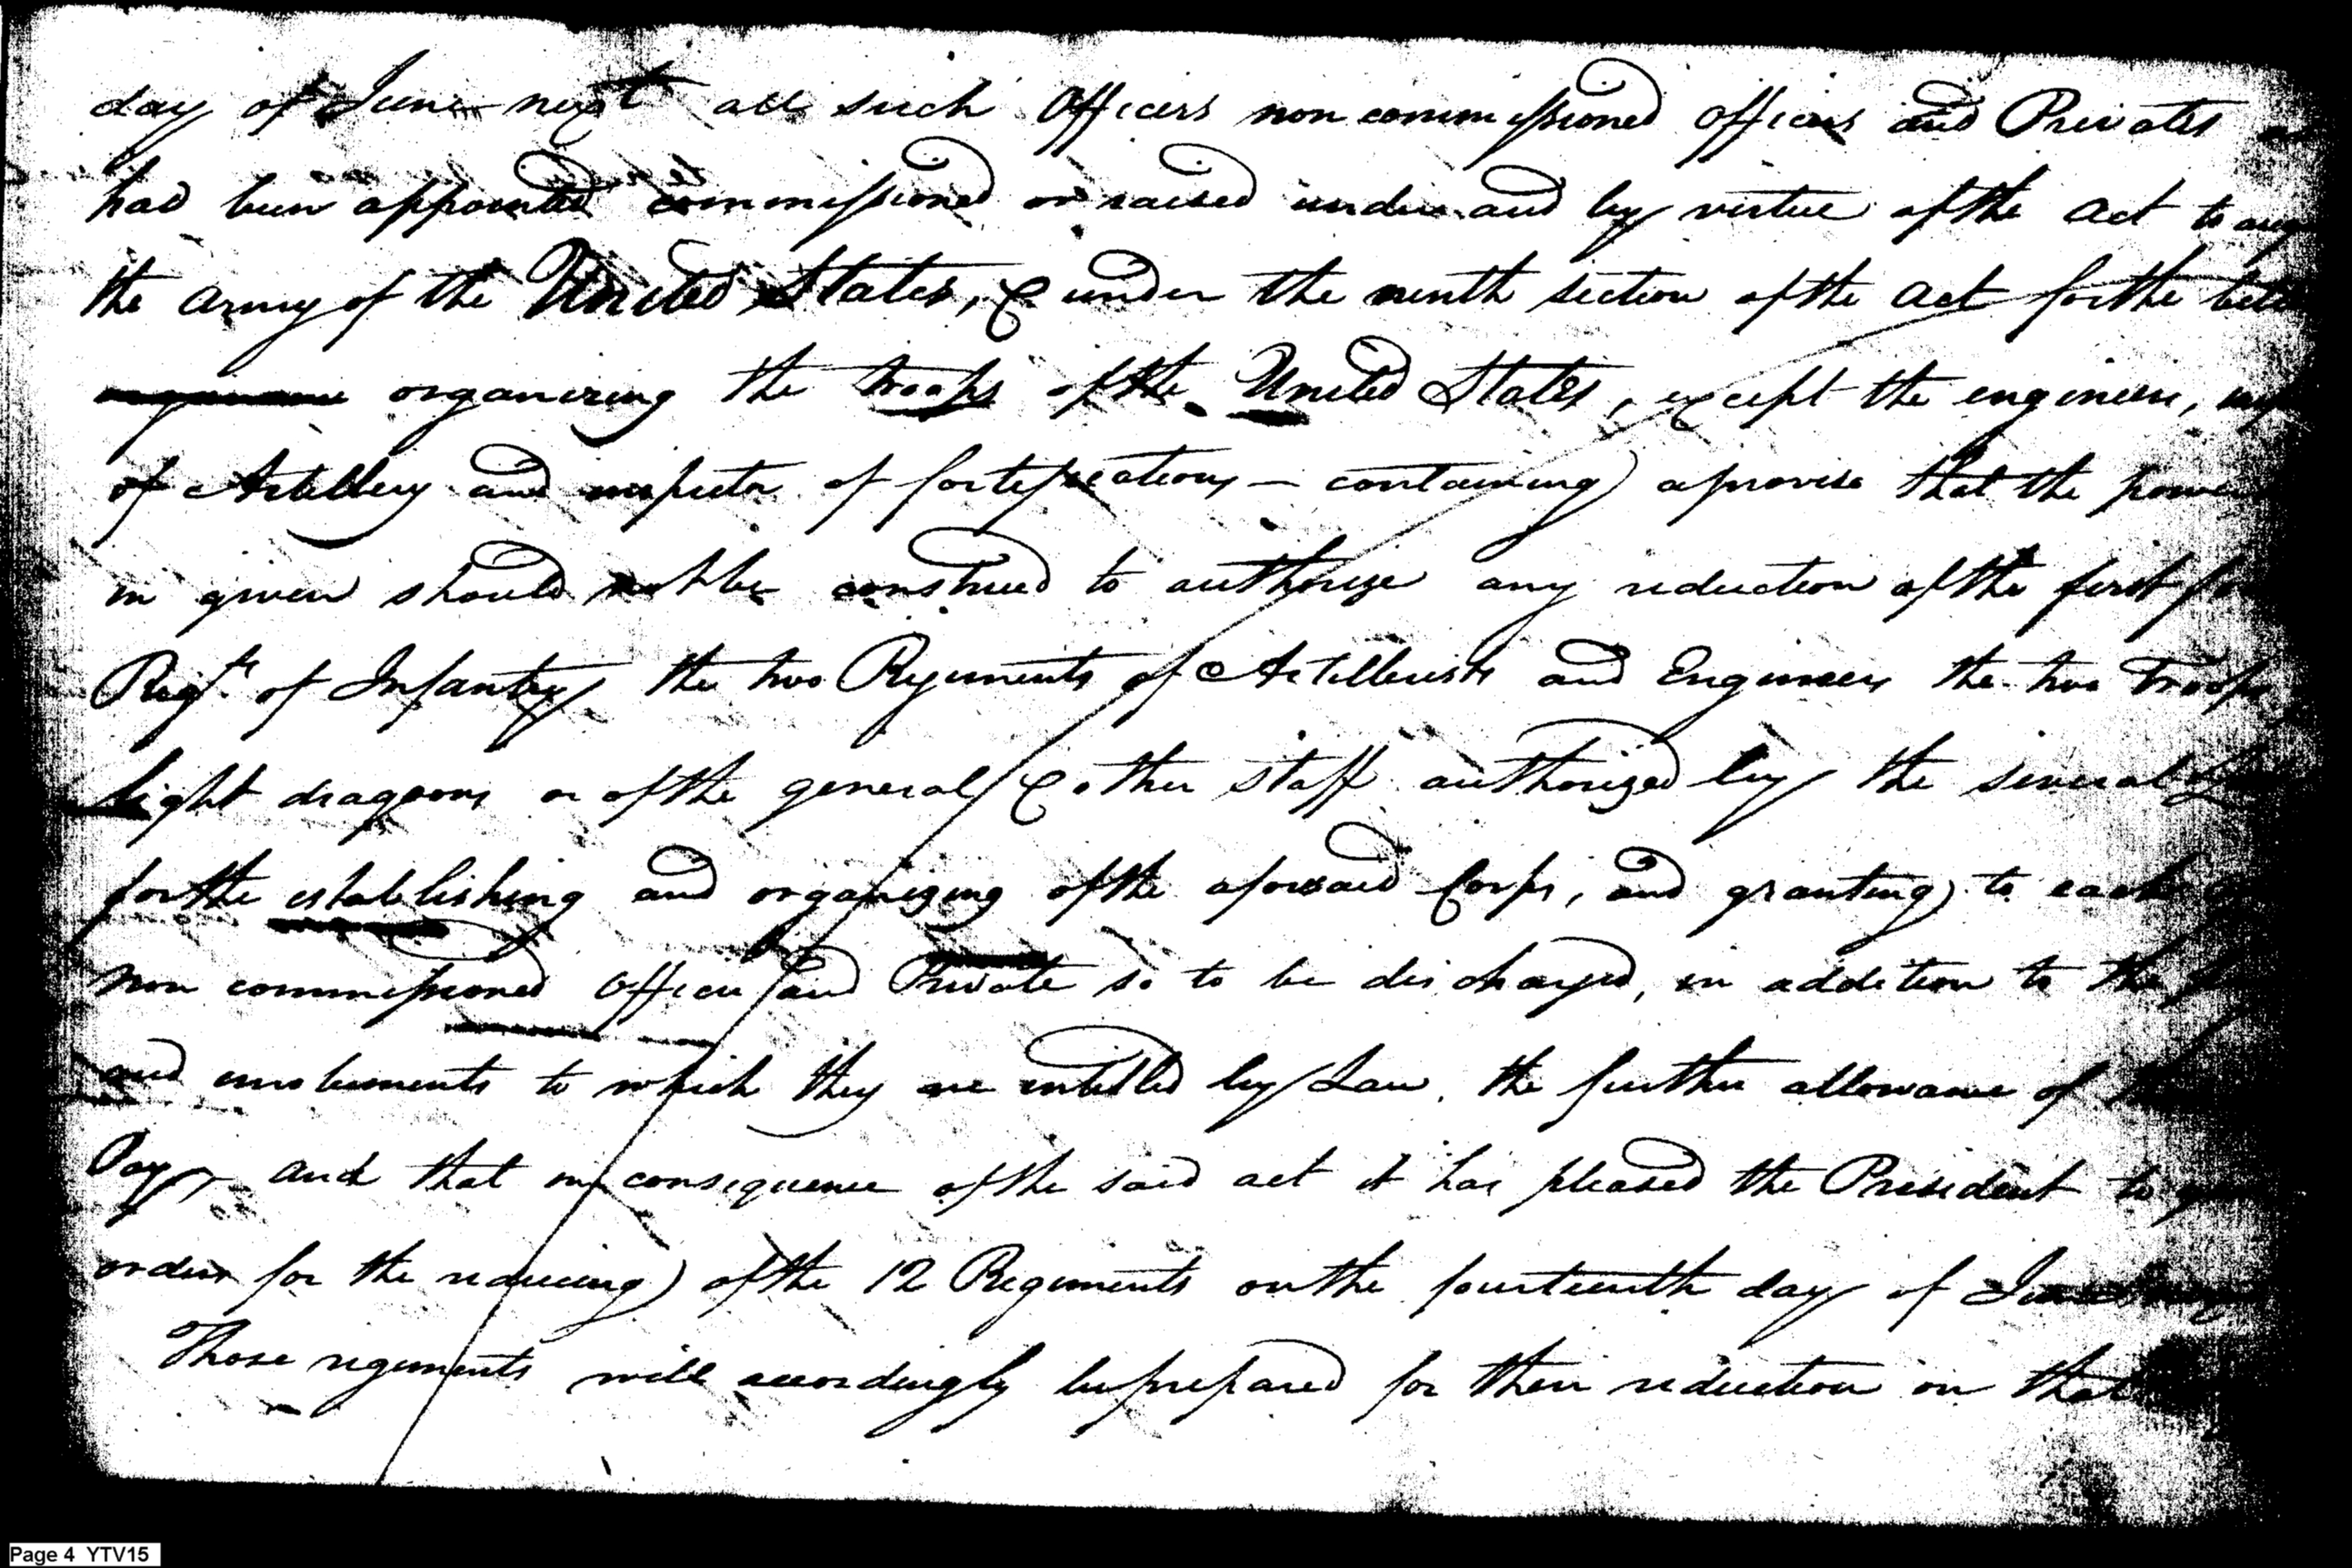 day of June next all such Officers non commissioned officers and Privates
had been appointed commissioned or raised under and by virtue of the act to aug
the army of the United States, & under the ninth section of the act for the bet
organizing the troops of the United States, except the engineers,
of Artillery and inspector of fortifications — containing a proviso that the power
in given should not be construed to authorize any reduction of the first
Regts of Infantry the two Regiments of Artillerists and Engineers the two Troops
light dragoons or of the general & other staff authorized by the several
for the establishing and organizing of the aforesaid Corps, and granting to each
non commissioned officer and Private so to be discharged, in addition to the
and emoluments to which they are entitled by Law, the further allowance of
Pay, and that in consequence of the said act it has pleased the President to
orders for the reducing of the 12 Regiments on the fourteenth day of
Those regiments will accordingly be prepared for their reduction on that
Page 4 YTV15